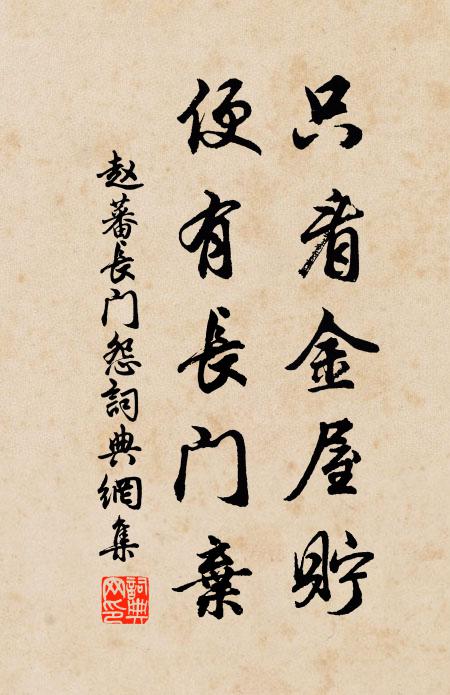 只看金屋貯
便有長门棄
赵蕃長门怨詞典網集
詞典
网印